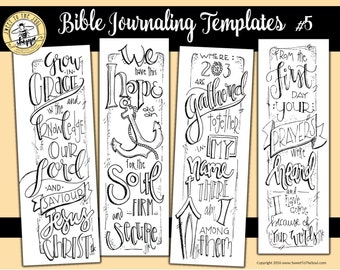 SWEET TO THE SOUL
Shoppe
Bible Journaling Templates #5
Grow
IN
GRACE
and in the
KNOWLEDGE
OF
OUR
Lord
AND
SAVIOUR
Jesus
CHRIST
We
have this
Hope
as an
for the
SOUL
FIRM
AND
SECURE
WHERE
2 OR 3
ARE
gathered
TOGETHER
IN MY
Name
THERE
am I
AMONG
THEM
FROM THE
first
DAY
YOUR
PRAYERS
were
heard
and I
have come
because of
your words
Copyright 2016 www.SweetToTheSoul.com